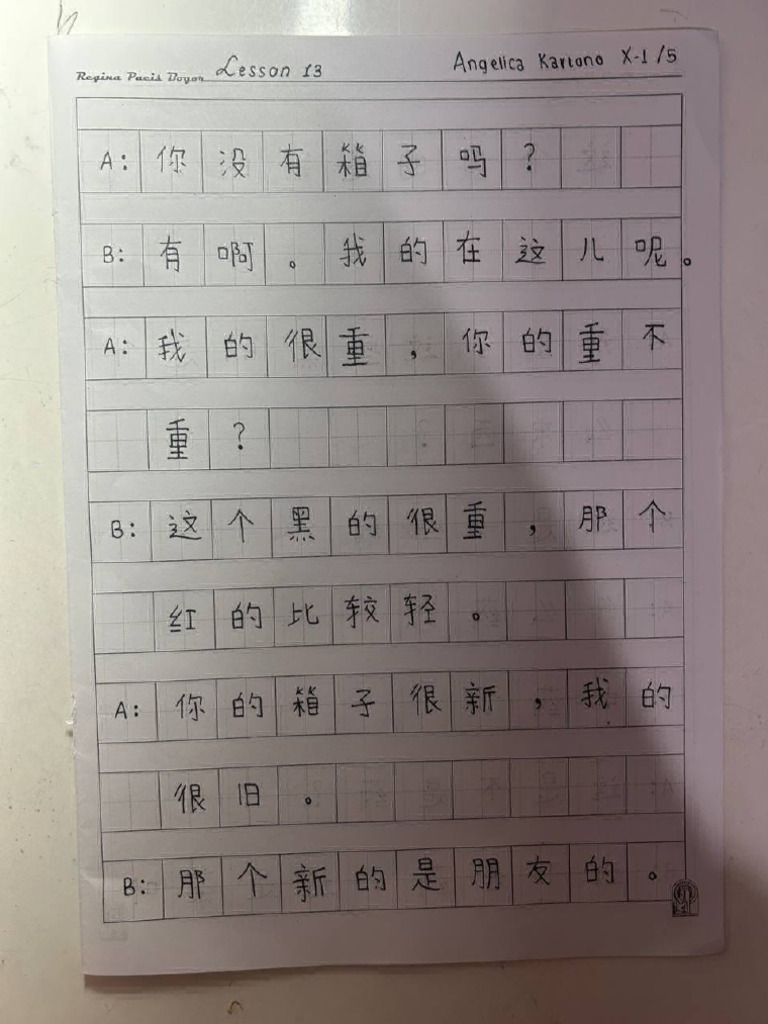 Regina Pacis Bogor Lesson 13 Angelica Kartono X-1/5
A: 你没有箱子吗?
B: 有啊。我的在这儿呢。
A: 我的很重,你的重不
重?
B: 这个黑的很重,那个
红的比较轻。
A: 你的箱子很新,我的
很旧。
B: 那个新的是朋友的。